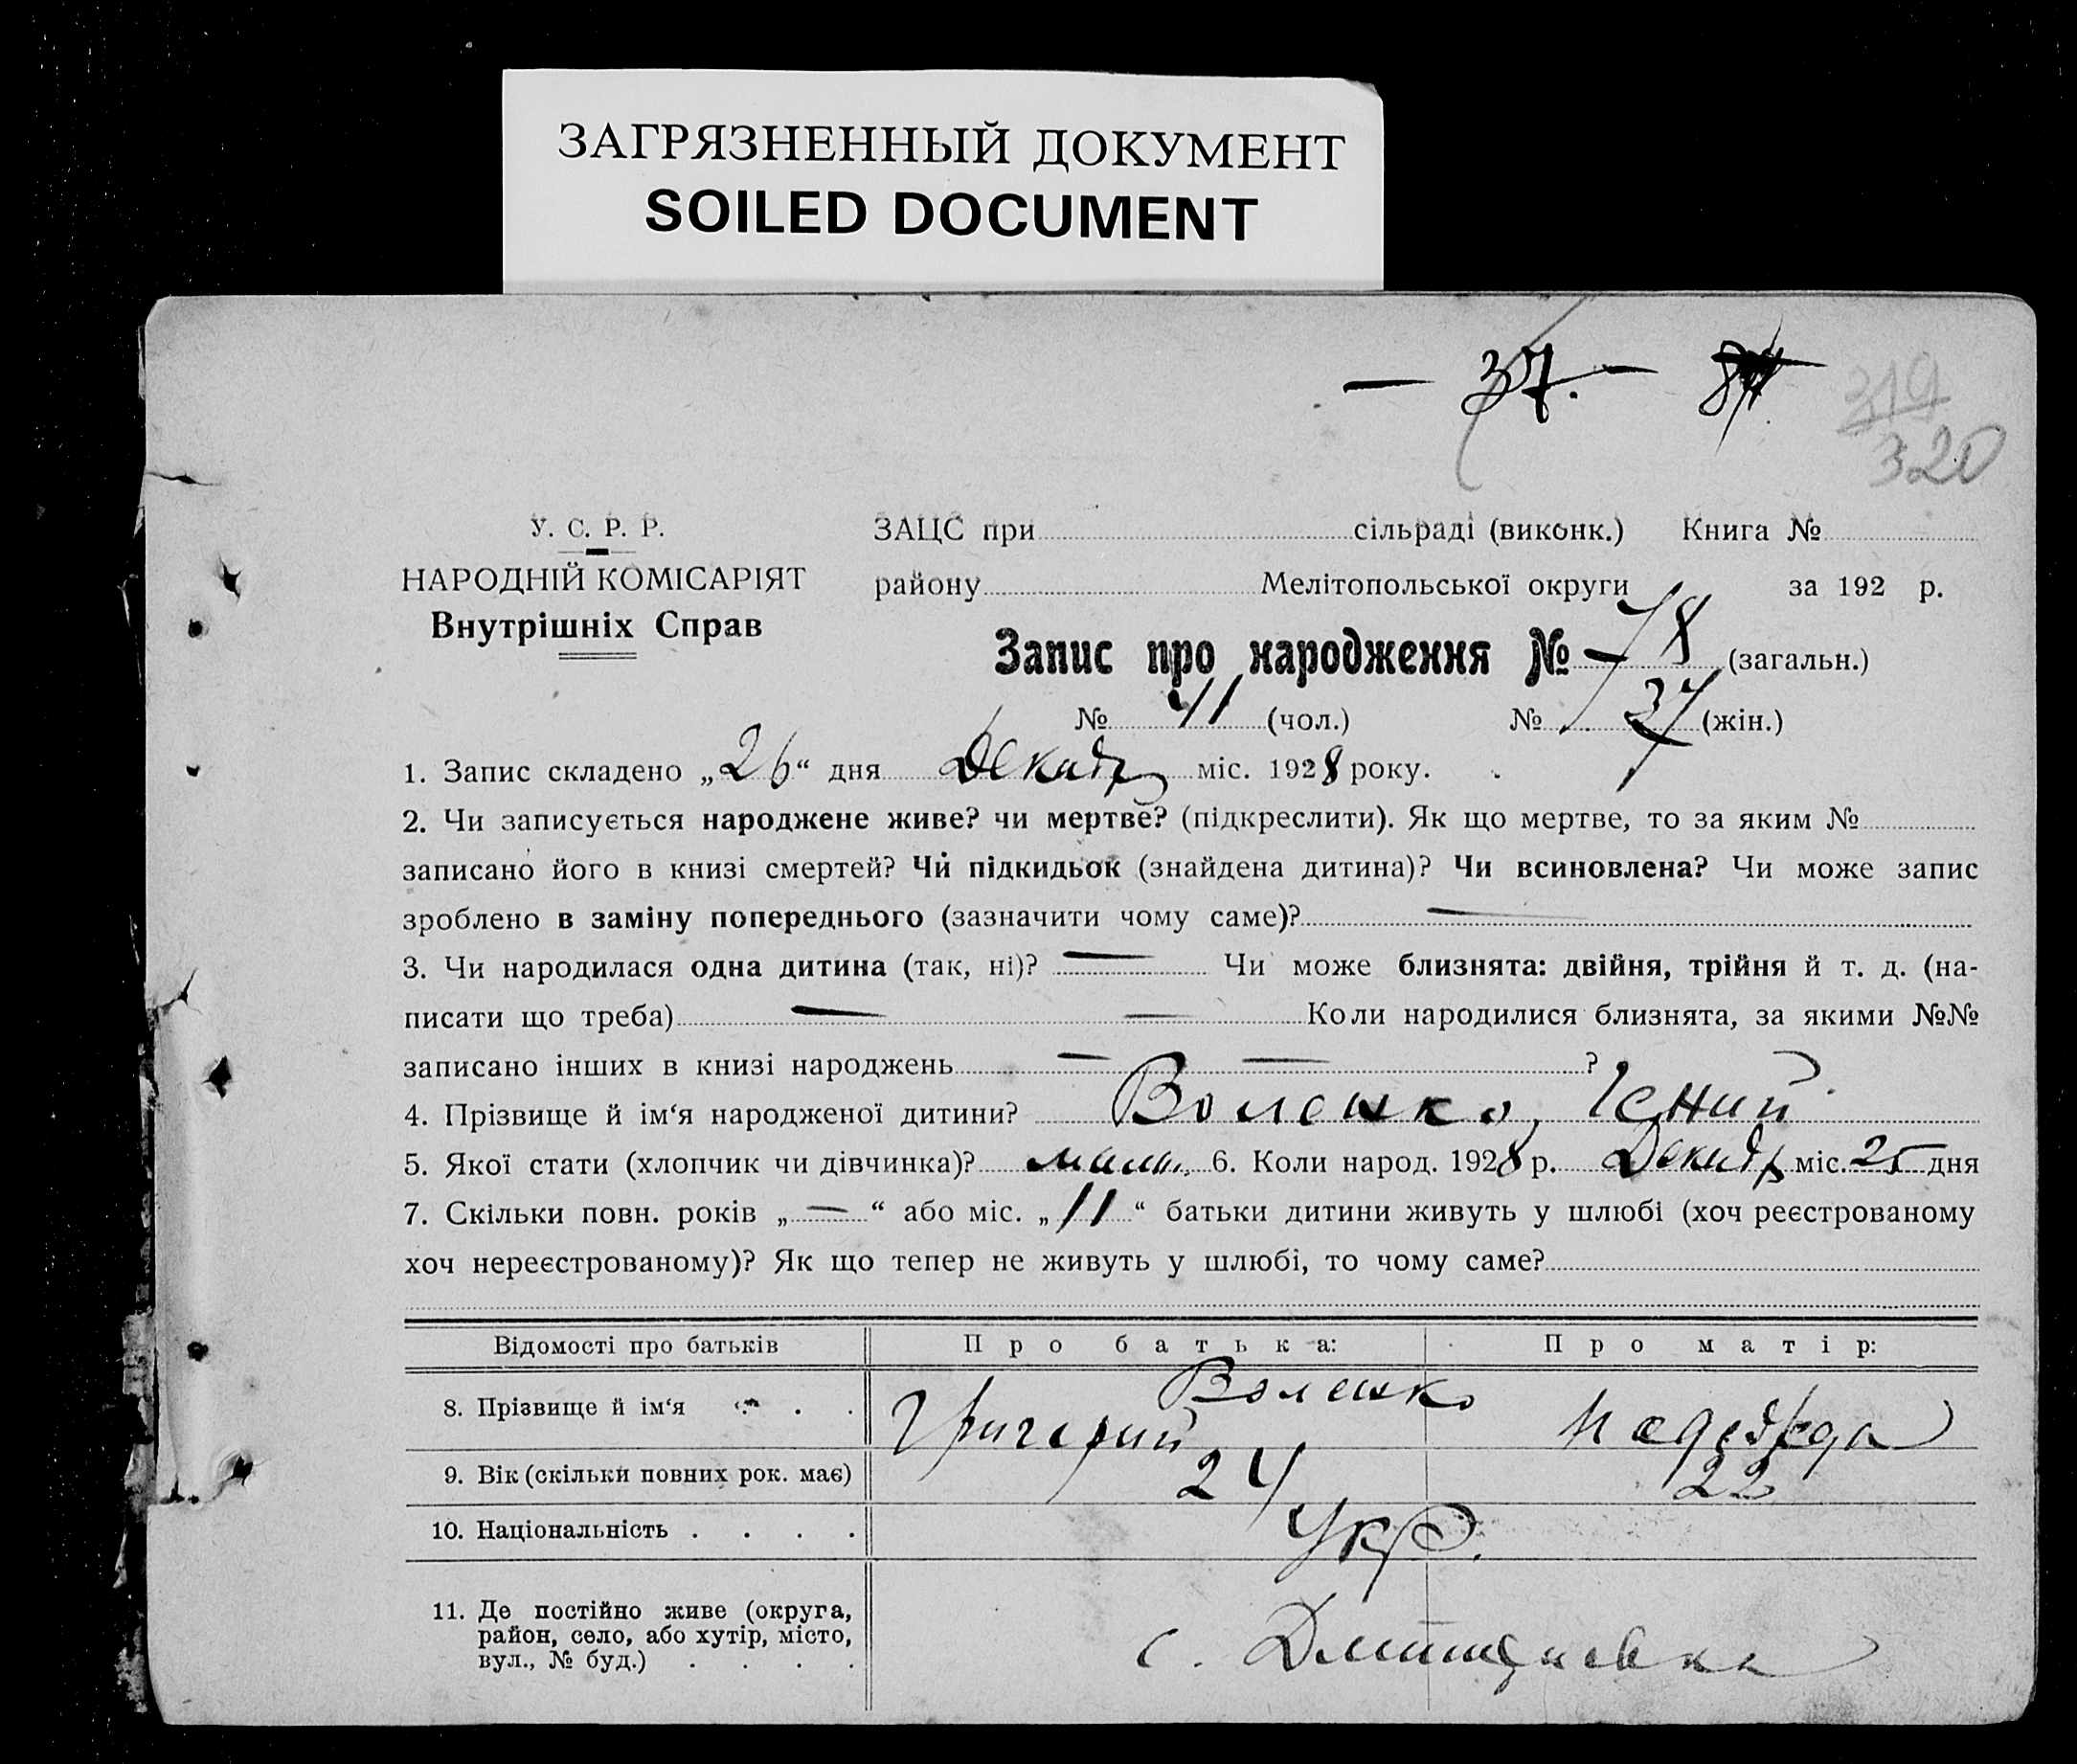 ЗАГРЯЗНЕННЫЙ ДОКУМЕНТ
SOILED DOCUMENT
— 37. —
319
320
У. С. Р. Р.
НАРОДНІЙ КОМІСАРІЯТ
Внутрішніх Справ
ЗАЦС при сільраді (виконк.) Книга №
району Мелітопольської округи за 192 р.
Запис про народження № 78 (загальн.)
№ 41 (чол.) № 37 (жін.)
1. Запис складено „26“ дня Декабр міс. 1928 року.
2. Чи записується народжене живе? чи мертве? (підкреслити). Як що мертве, то за яким №
записано його в книзі смертей? Чи підкидьок (знайдена дитина)? Чи всиновлена? Чи може запис
зроблено в заміну попереднього (зазначити чому саме)? —
3. Чи народилася одна дитина (так, ні)? — Чи може близнята: двійня, трійня й т. д. (на-
писати що треба) — — Коли народилися близнята, за якими №№
записано інших в книзі народжень — — ?
4. Прізвище й ім‘я народженої дитини? Волешко,
5. Якої стати (хлопчик чи дівчинка)? 6. Коли народ. 1928 р. Декабр міс. 25 дня
7. Скільки повн. років „—“ або міс. „11“ батьки дитини живуть у шлюбі (хоч реєстрованому
хоч нереєстрованому)? Як що тепер не живуть у шлюбі, то чому саме?
Відомості про батьків Про батька: Про матір:
Волешко
8. Прізвище й ім‘я . . . Григорий Надежда
9. Вік (скільки повних рок. має) 24 22
10. Національність . . . . Укр.
11. Де постійно живе (округа,
район, село, або хутір, місто,
вул., № буд.) . . . . с. Дмитриевка